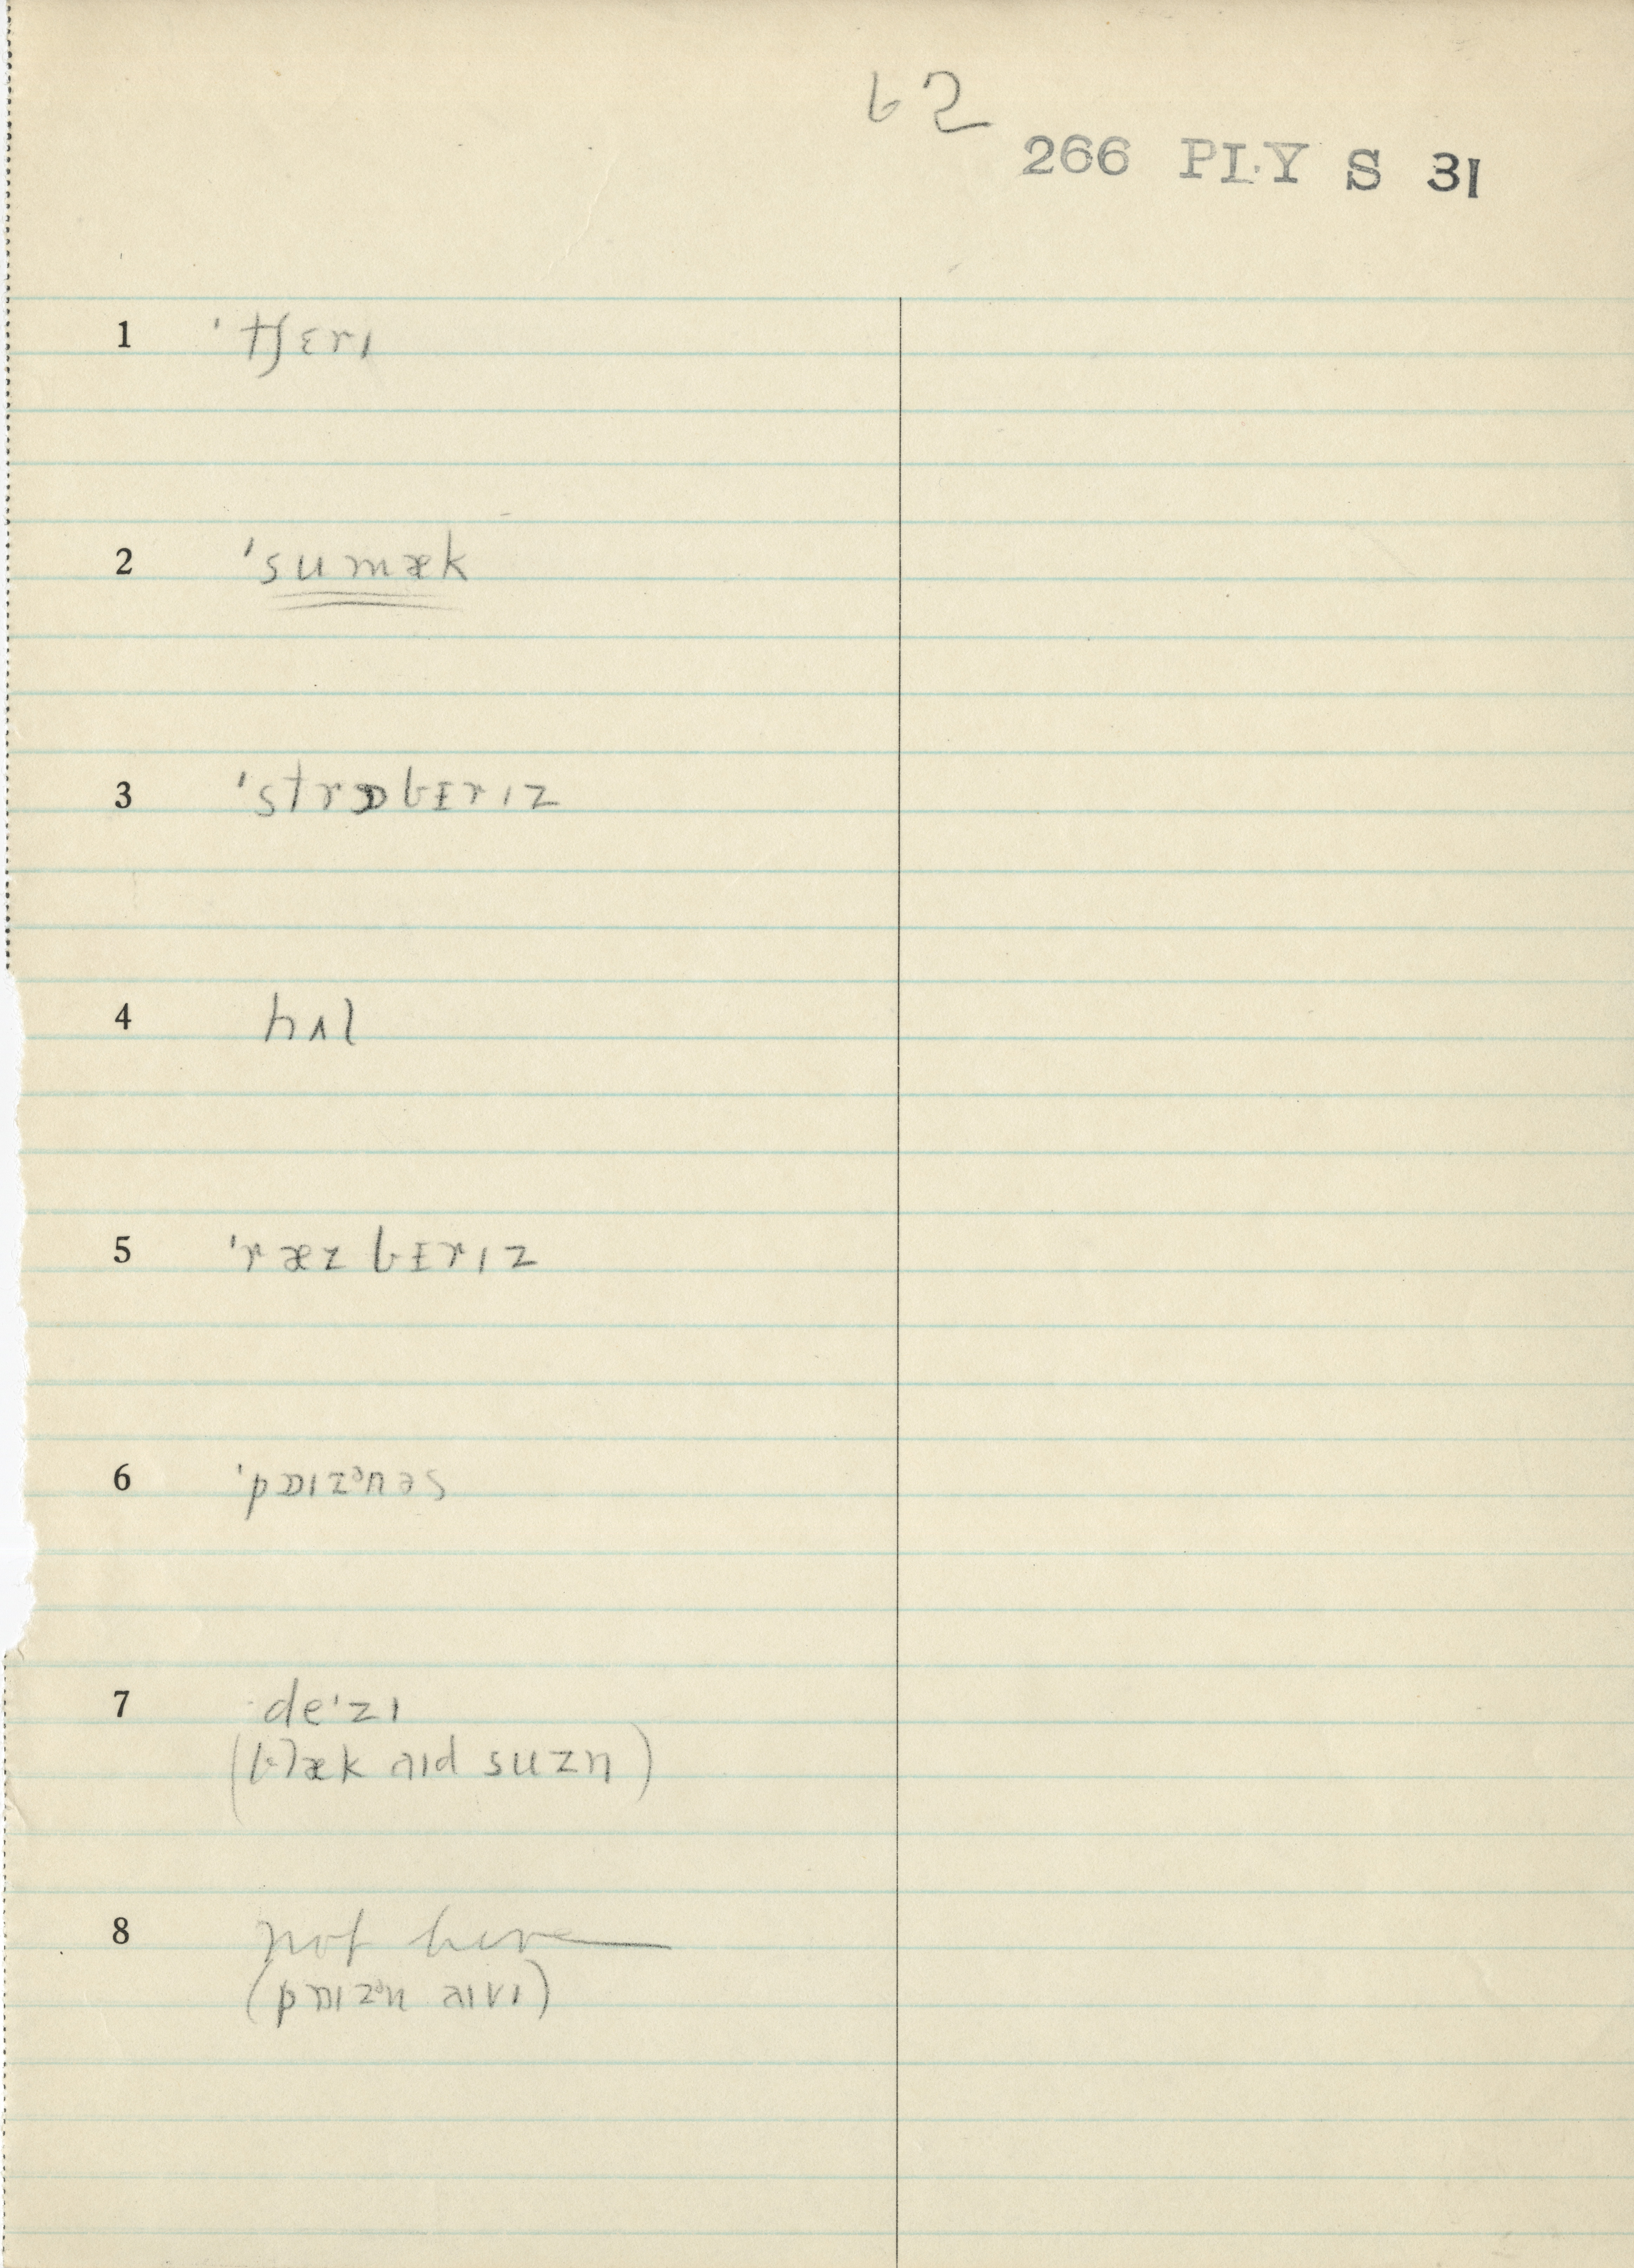 62
266 PLY S 31
1 ˈtʃɛrɪ
2 ˈsumæk
3 ˈstrɒbɪrɪz
4 hʌl
5 ˈræz bɪrɪz
6 ˈpɒɪzᵊnəs
7 deˈzɪ
(blæk aɪd suzn)
8 not here
(pɒɪzᵊn aɪvɪ)